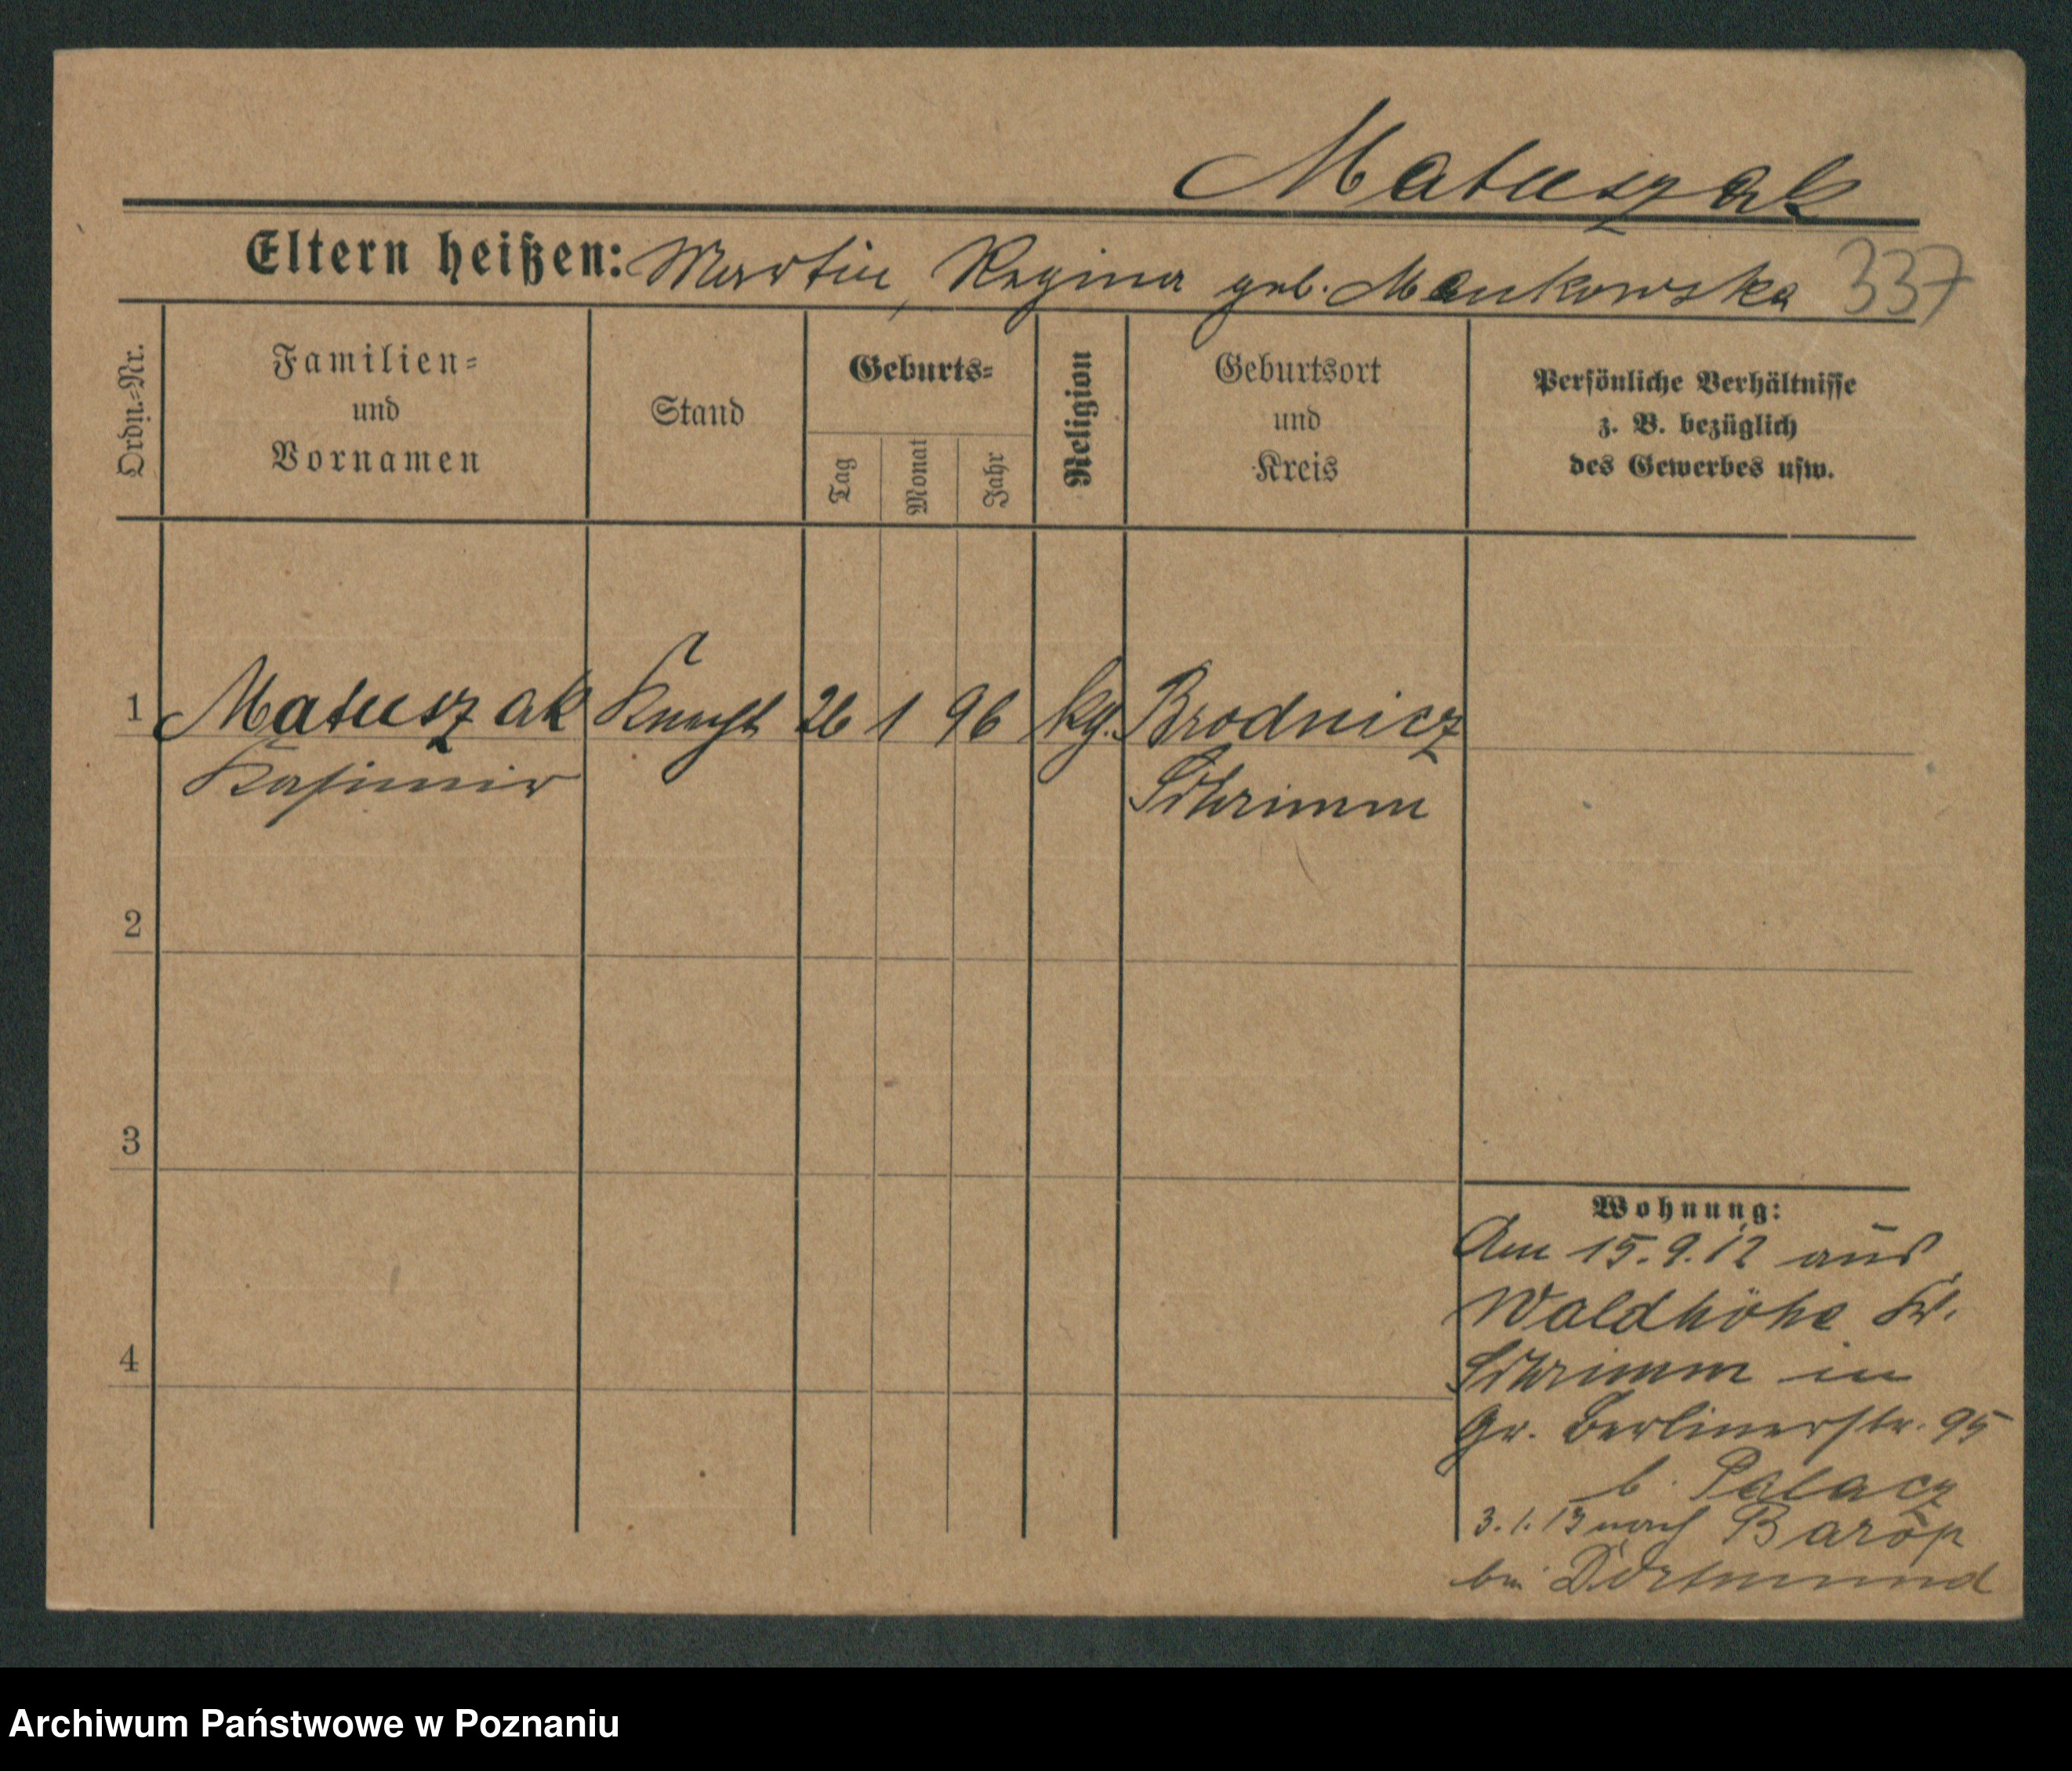 Matuszak
Eltern heißen: Martin, Regina geb. Mankowska 337
Ordn.-Nr.
Familien- und Vornamen
Stand
Geburts-
Tag
Monat
Jahr
Religion
Geburtsort und Kreis
Persönliche Verhältnisse z. B. bezüglich des Gewerbes usw.
1 Matuszak Knecht 26 1 96 kg. Brodnicz
Kasimir Schrimm
2
3
4
Wohnung:
Am 15.9.12 aus
Waldhöhe Kr.
Schrimm in
Gr. Berlinerstr. 95
b. Palacz
3.1.13 nach Barop
bei Dortmund
Archiwum Państwowe w Poznaniu